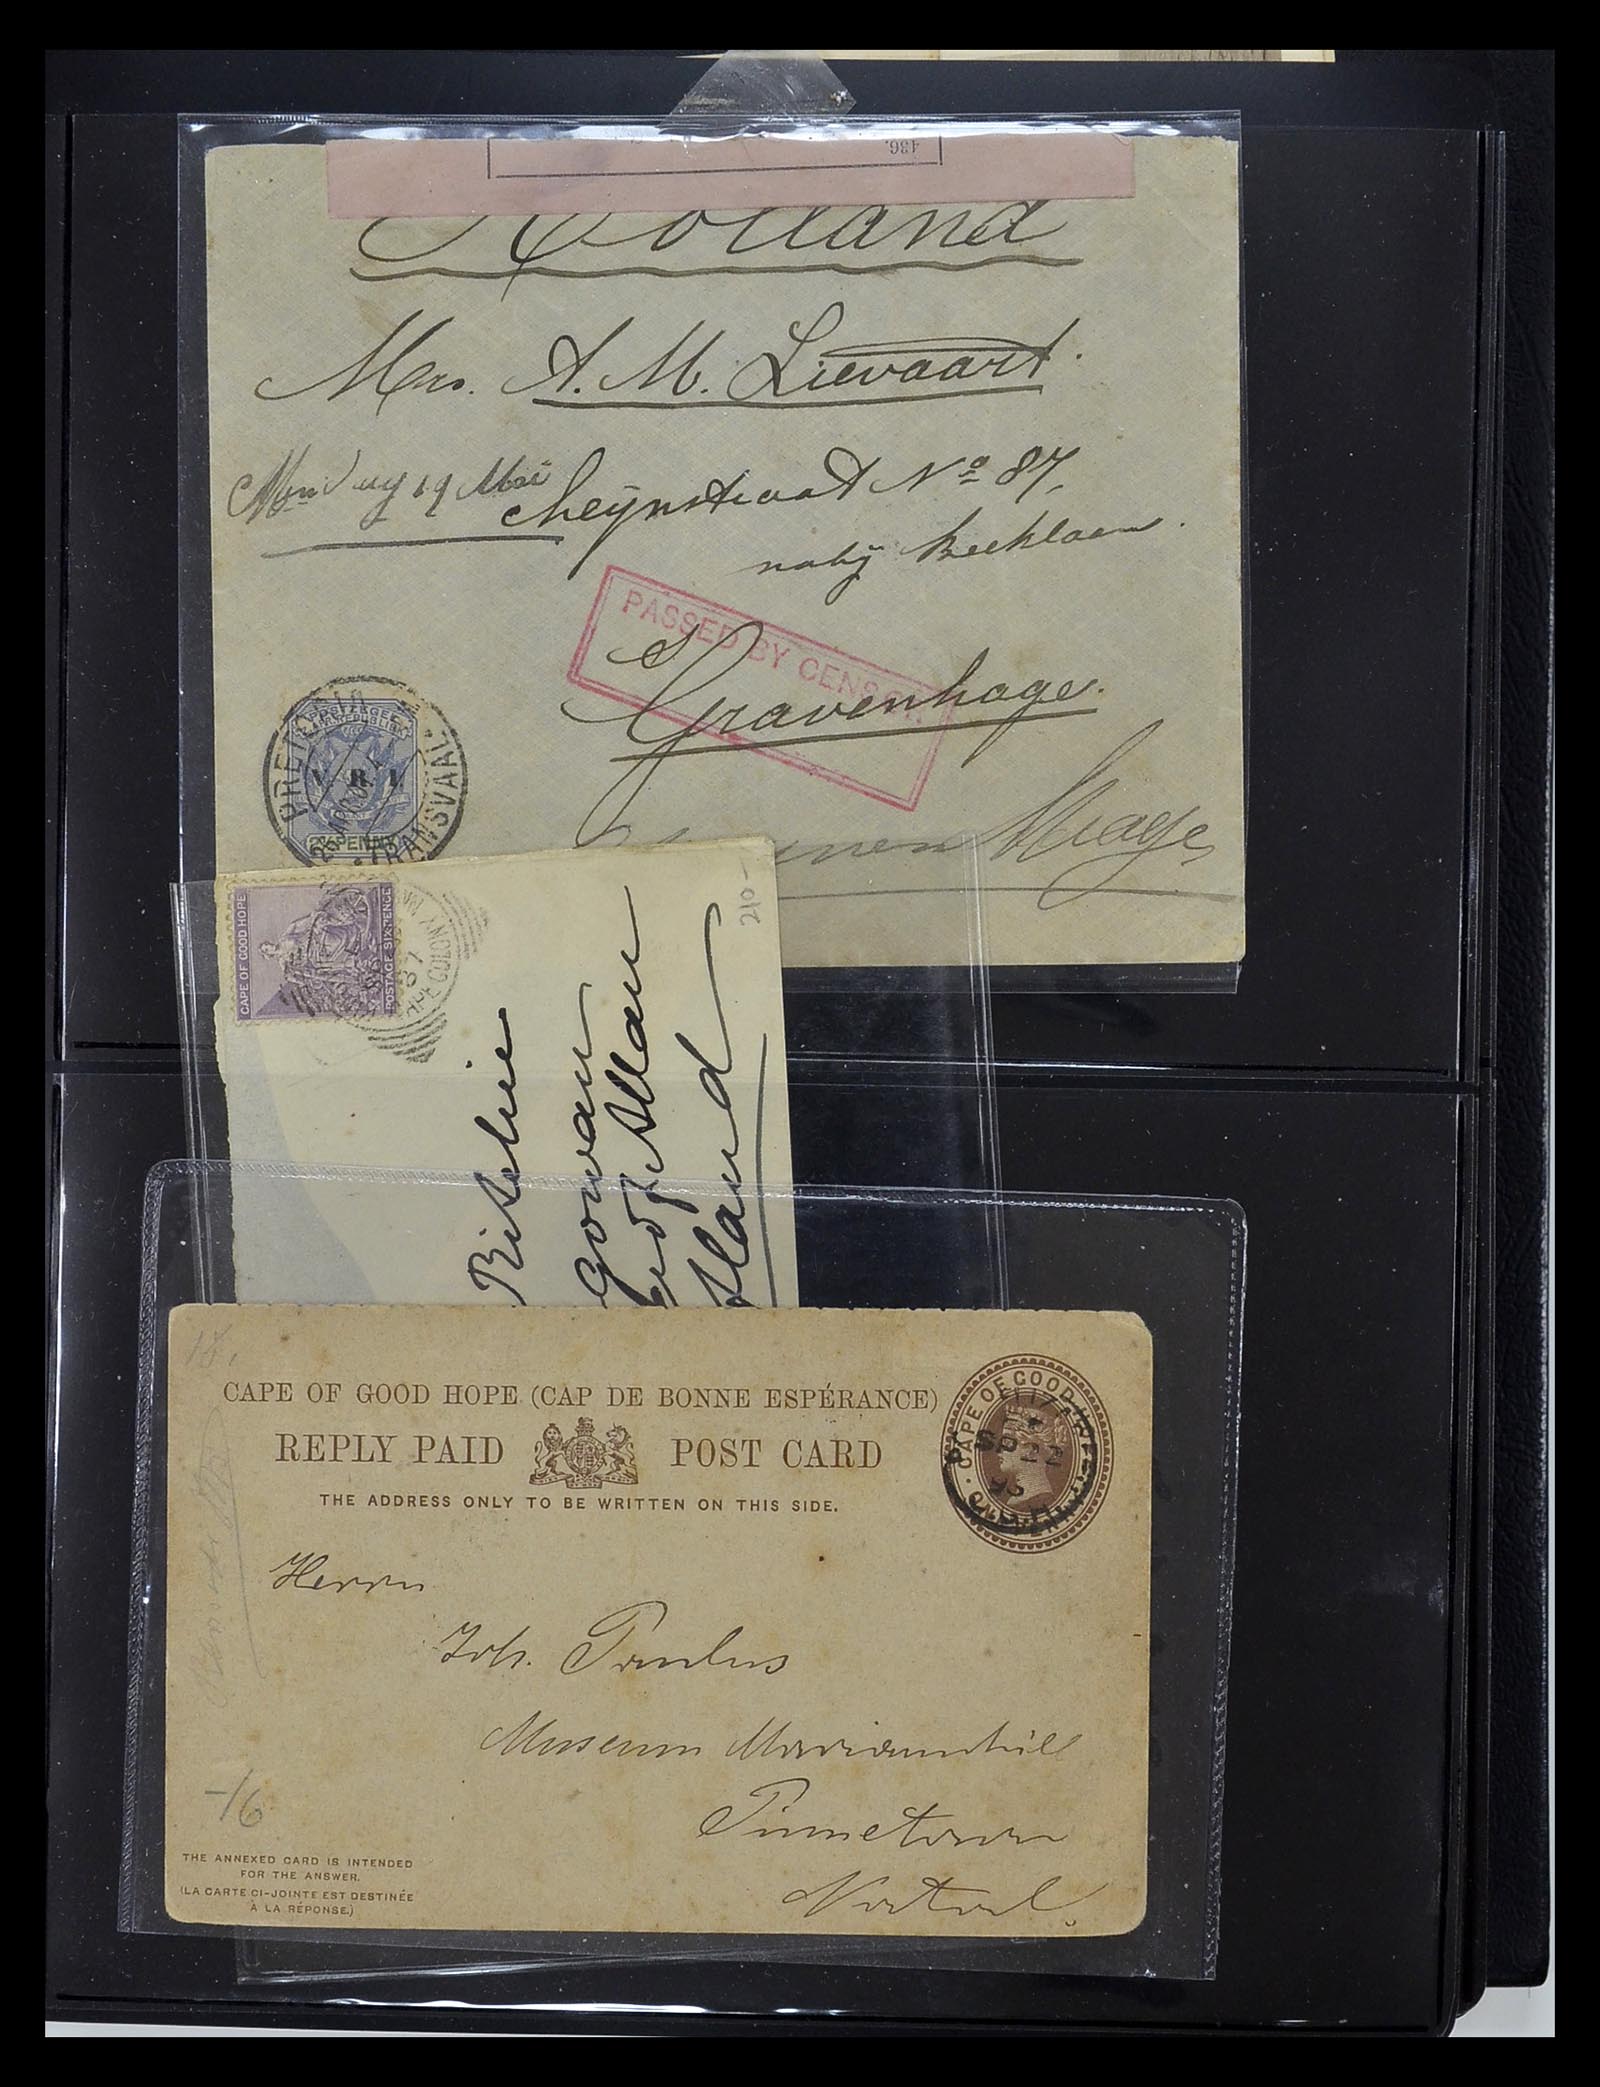 436.
Holland
Mrs. A. M. Lievaart.
Monday 19 Mei
Cheijnstraat No 87,
nabij Beeklaan.
PASSED BY CENSOR
S Gravenhage.
Hage
PRETORIA
TRANSVAAL
POSTZEGEL
Z. AFR. REPUBLIEK
V. R. I.
2½ PENNY
CAPE OF GOOD HOPE
POSTAGE SIX PENCE
CAPE COLONY
97
210-
Ritchie
Gowan
of Allan
15.
CAPE OF GOOD HOPE (CAP DE BONNE ESPÉRANCE)
REPLY PAID POST CARD
THE ADDRESS ONLY TO BE WRITTEN ON THIS SIDE.
CAPE OF GOOD HOPE
ONE PENNY
22
Herrn
Joh. Paulus
Museum Mariannhill
Pinetown
Natal.
-/6
THE ANNEXED CARD IS INTENDED
FOR THE ANSWER.
(LA CARTE CI-JOINTE EST DESTINÉE
À LA RÉPONSE.)